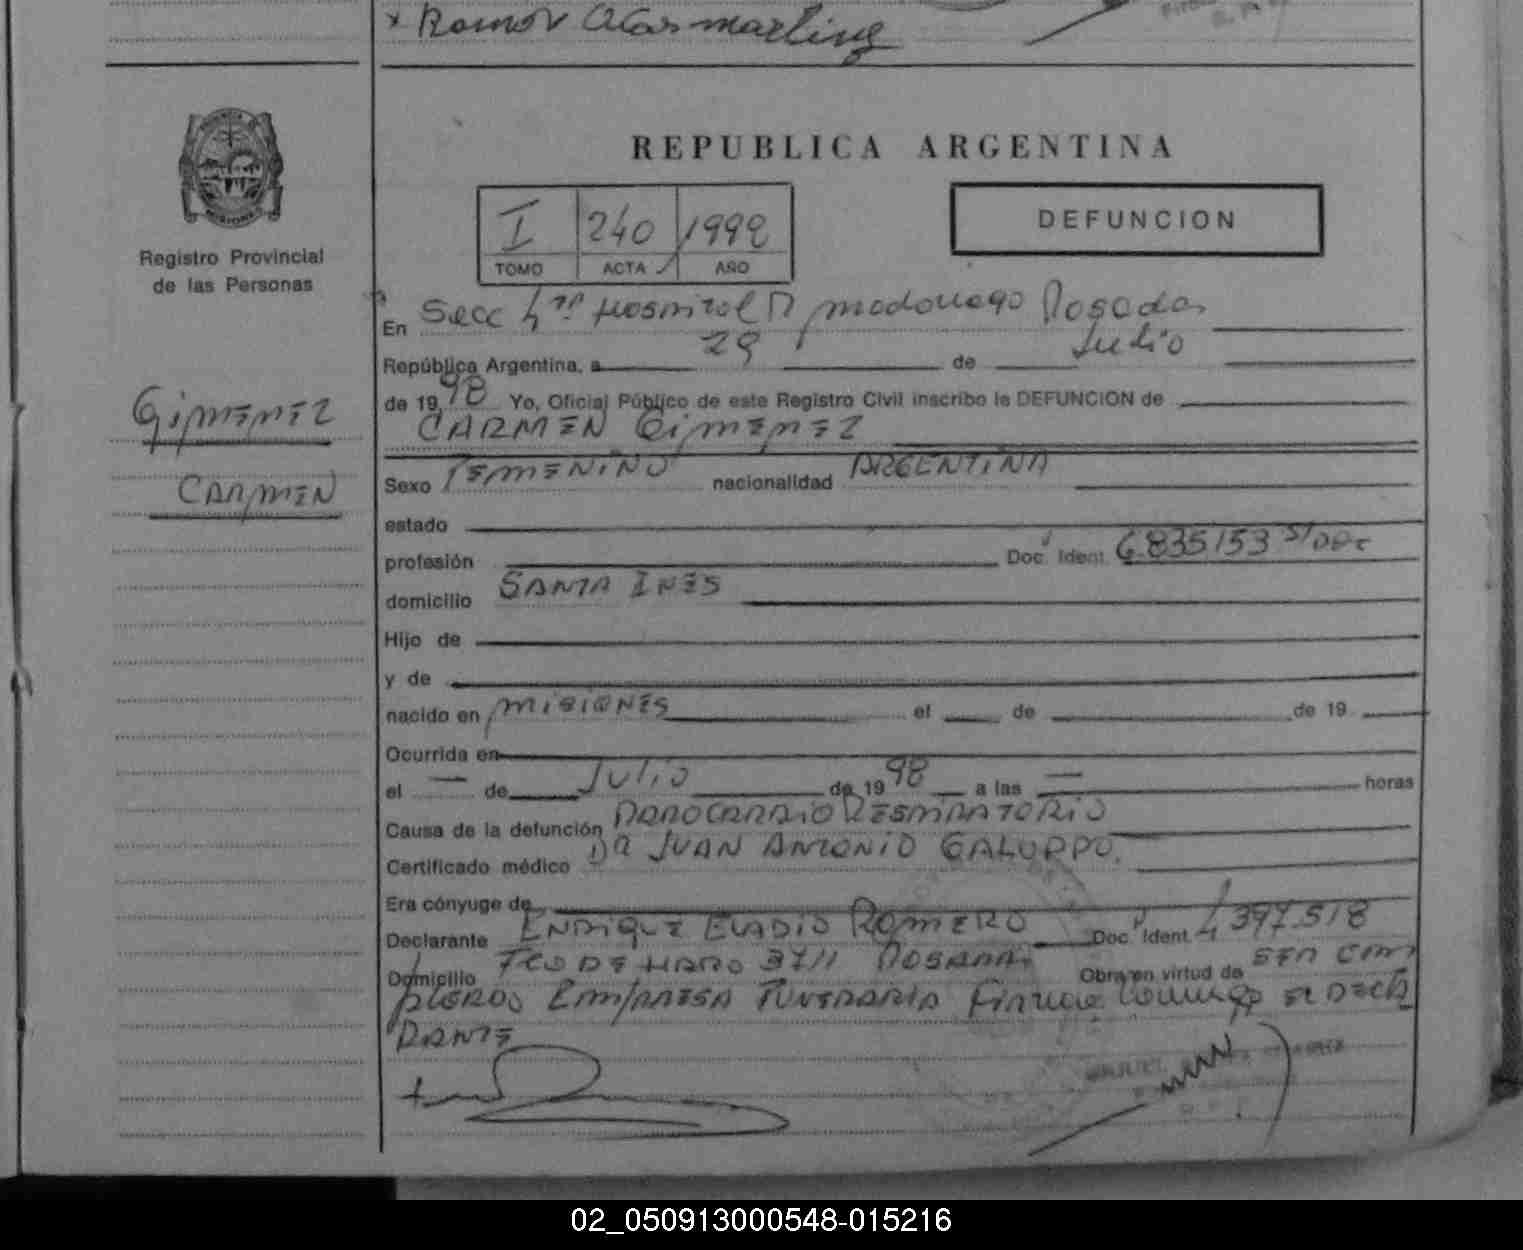 x Ramon Oscar Martinez
REPUBLICA ARGENTINA
I 240 1998
TOMO ACTA AÑO
DEFUNCION
MISIONES
Registro Provincial
de las Personas
En Secc 4ta Hospital R Madariaga Posadas
República Argentina, a 29 de Julio
de 1998 Yo, Oficial Público de este Registro Civil inscribo la DEFUNCION de
GIMENEZ
CARMEN GIMENEZ
CARMEN
Sexo FEMENINO nacionalidad ARGENTINA
estado
profesión Doc. Ident. 6.835153 S/DOC
domicilio SANTA INES
Hijo de
y de
nacido en MISIONES el de de 19
Ocurrida en
el — de Julio de 1998 a las — horas
Causa de la defunción PAROCARDIO RESPIRATORIO
Certificado médico DR JUAN ANTONIO GALUPPO.
Era cónyuge de
Declarante ENRIQUE ELADIO ROMERO Doc. Ident. 4.397.518
Domicilio TCO DE HARO 3711 POSADAS Obra en virtud de SER COM
PLEADO EMPRESA FUNERARIA Firma conmigo EL DECLA
RANTE
02_050913000548-015216